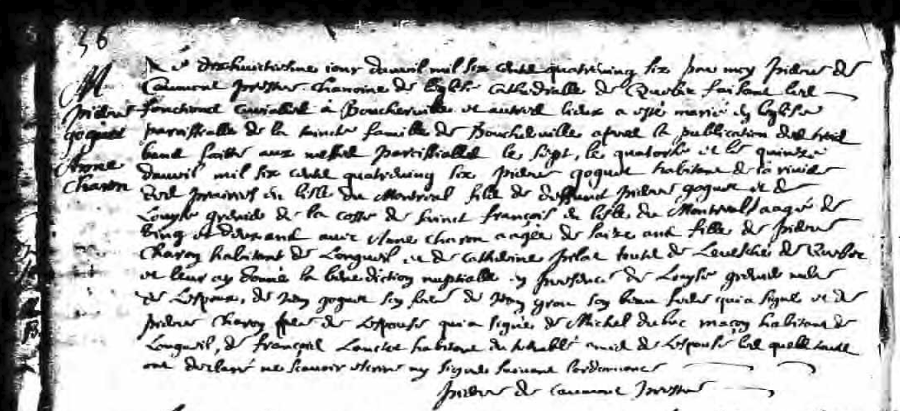 36
M
pierre
goguet
Anne
Charon
Le dixhuictiesme jour davril mil six cents quatreving six par moy pierre de
Caumont prestre chanoine de l'eglise cathedralle de Quebec faisant les
fonctions curialles à Boucherville et autres lieux a esté marié en l'eglise
parroissialle de la saincte famille de Boucherville apres la publication des trois
bans faitte aux messes parroissialles le sept, le quatorse et le quinze
davril mil six cents quatreving six pierre goguet habitant de la riviere
des prairies en l'isle du Montreal fils de deffunct pierre goguet et de
Louyse greuide de la coste de sainct françois en l'isle du Montreal aagé de
ving et deux ans avec Anne charon aagée de saize ans fille de pierre
charon habitant de Longueil et de Catherine pilat touts de l'evesché de Quebec
et leur ay donné la benediction nuptialle en presence de Louyse greuide mere
de l'espoux, de Jean goguet son frere de Jean grou son beau frere qui a signé et de
pierre charon pere de l'espouse qui a signé de Michel dubuc maçon habitant de
Longueil, de françois habitant du tremblé amis de l'espouse lesquels touts
ont declaré ne scavoir escrire ny signer suivant l'ordonnance
pierre de caumont prestre